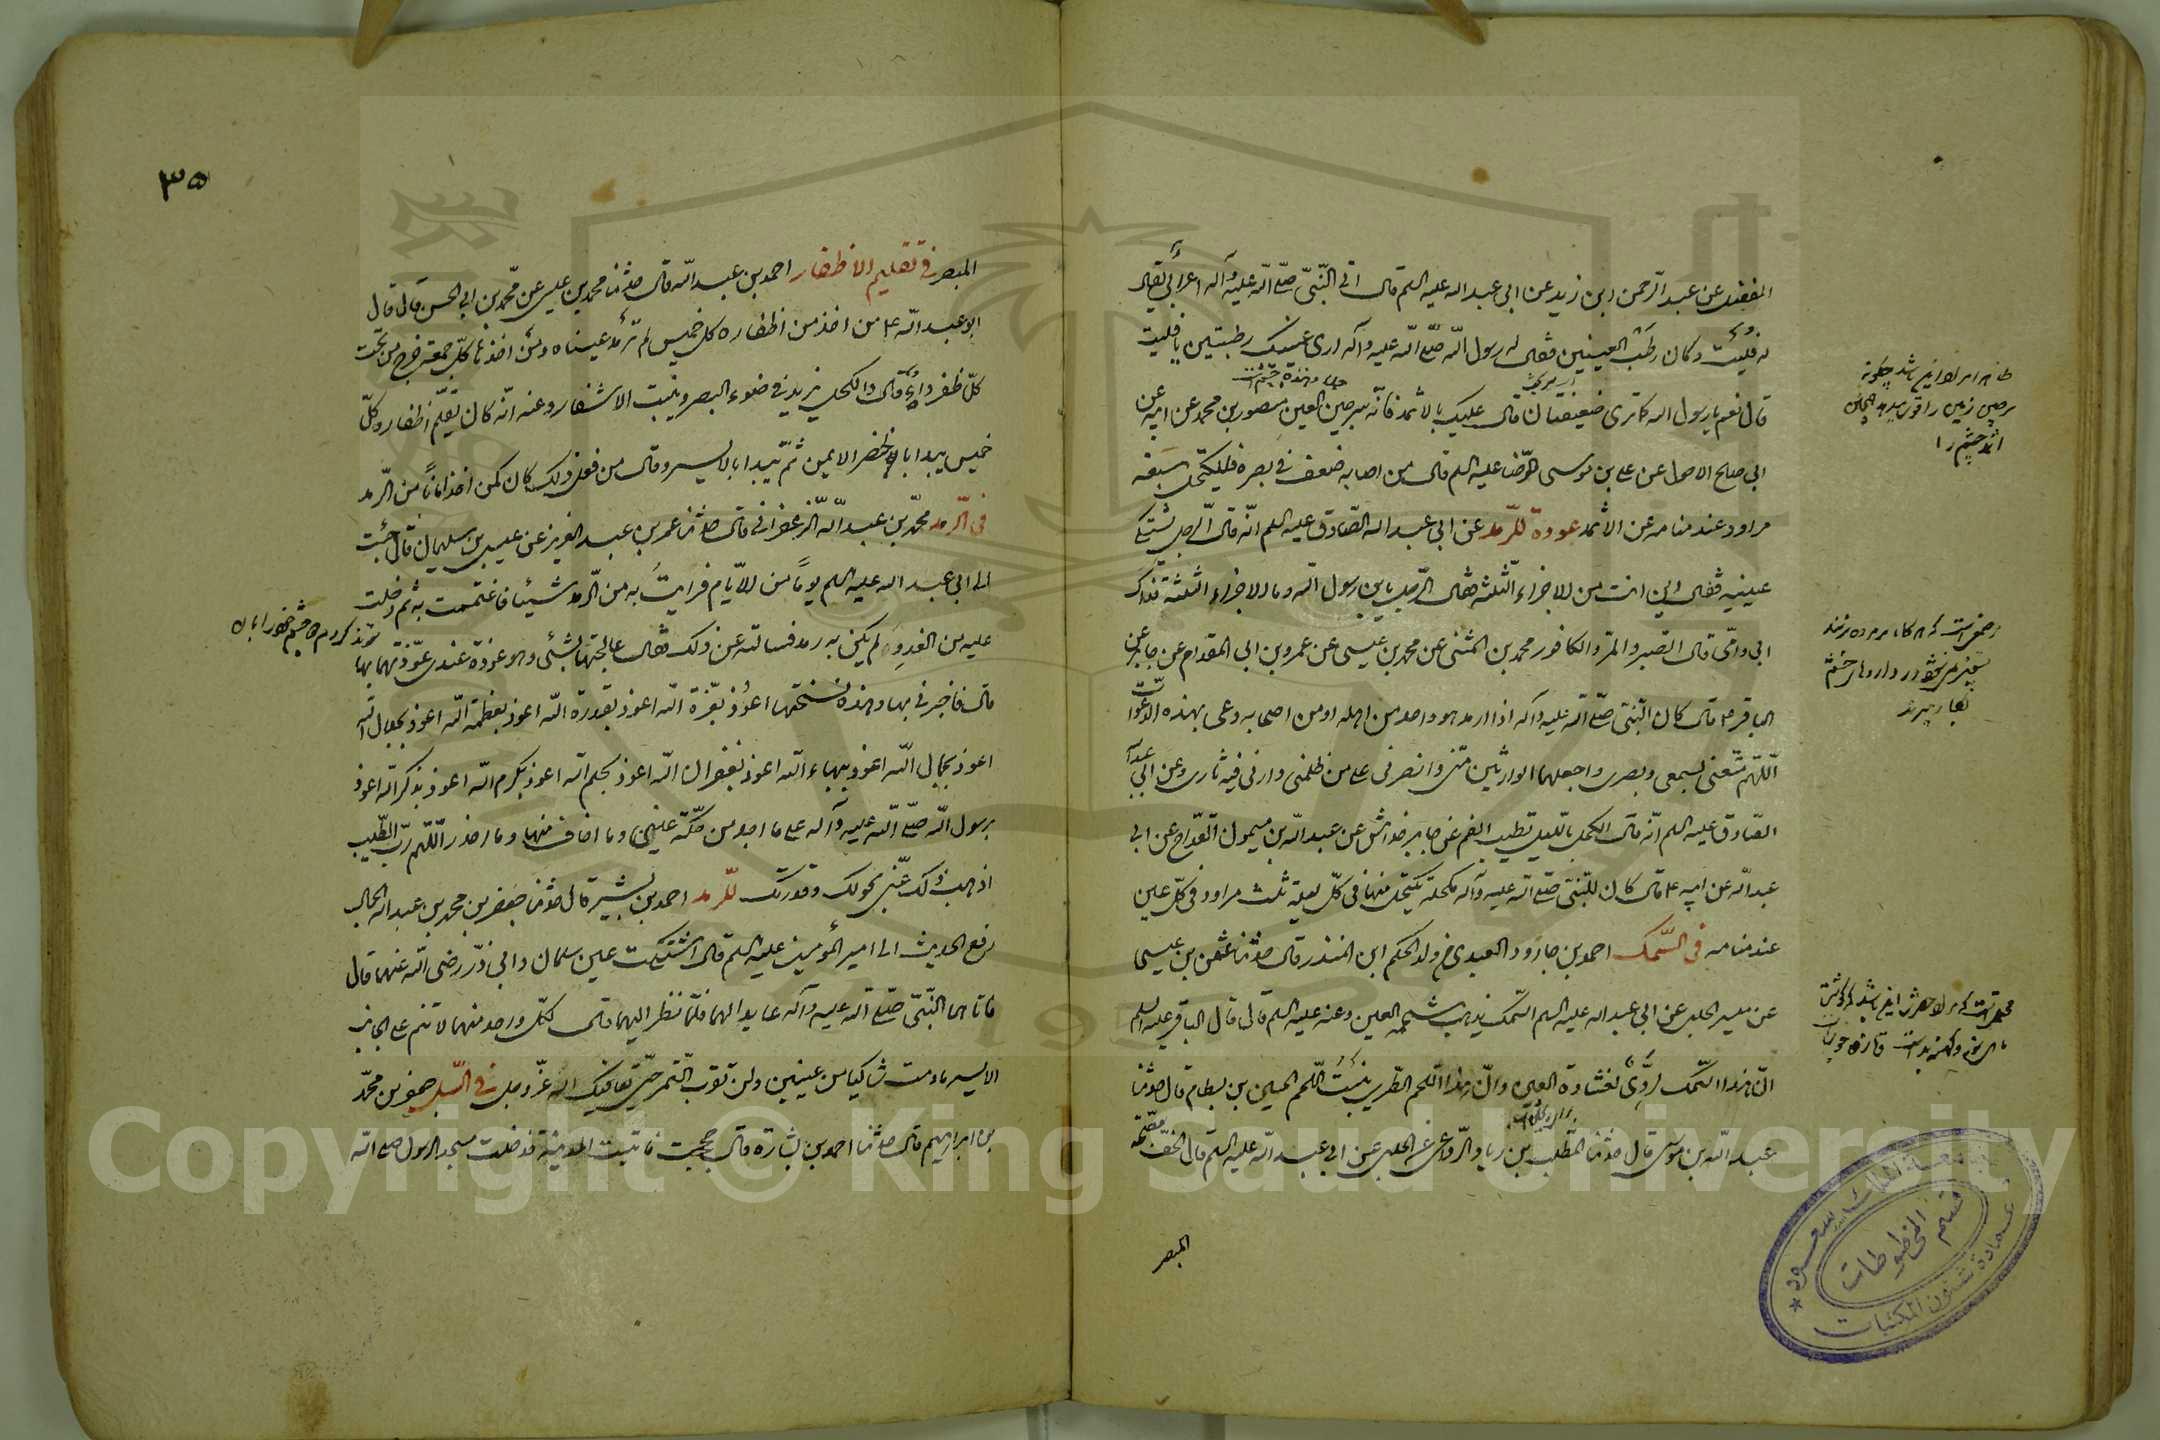 المفضل عن عبد الرحمن ابن زيد عن ابي عبد الله عليه السلم قال اتى النبي صلى الله عليه وآله اعرابي يقال
له فليت وكان رطب العينين فقال له رسول الله صلى الله عليه وآله ارى عينيك رطبتين يا فليت
قال نعم يا رسول الله كما ترى ضعيفتان قال عليك بالاثمد فانه سرجين العين منصور بن محمد عن ابيه عن
ابي صالح الاحول عن علي بن موسى الرضا عليه السلم قال من اصابه ضعف في بصره فليكتحل سبعة
مراود عند منامه عن الاثمد عوذة للرمد عن ابي عبد الله الصادق عليه السلم انه قال الرجل يشتكي
عينيه فقال اين انت من الاجزاء الثلثة فقال الرجل يا بن رسول الله وما الاجزاء الثلثة فداك
ابي وامي قال الصبر والمر والكافور محمد بن المثنى عن محمد بن عيسى عن عمرو بن ابي المقدام عن جابر عن
الباقر ع قال كان النبي صلى الله عليه وآله اذا ارمد هو واحد من اهله او من اصحابه دعى بهذه الدعوات
اللهم متعني بسمعي وبصري واجعلهما الوارثين مني وانصرني على من ظلمني وارني فيه ثاري وعن ابي عبد الله
الصادق عليه السلم انه قال الكحل بالليل تطيب الفم عن جابر خداش عن عبد الله بن ميمون القداح عن ابي
عبد الله عن ابيه ع قال كان للنبي صلى الله عليه وآله مكحلة يكتحل منها في كل ليلة ثلث مراود في كل عين
عند منامه في السمك احمد بن جارود العبدي من ولد الحكم ابن المنذر قال حدثنا عثمن بن عيسى
عن ميسر الحلبي عن ابي عبد الله عليه السلم السمك يذيب شحمة العين وعنه عليه السلم قال قال الباقر عليه السلم
ان هذا السمك لردي لغشاوة العين وان هذا اللحم الطري ينبت اللحم الحسين بن بسطام قال حدثنا
عبد الله بن موسى قال حدثنا المطلب بن زياد الرواعي عن الحلبي عن ابي عبد الله عليه السلم قال الخف مصحة
المبصر
٣٥
المبصر في تقليم الاظفار احمد بن عبد الله قال حدثنا محمد بن عيسى عن محمد بن ابي الحسن قال قال
ابو عبد الله ع من اخذ من اظفاره كل خميس لم ترمد عيناه ومن اخذها كل جمعة خرج من تحت
كل ظفر داء قال والكحل يزيد في ضوء البصر وينبت الاشفار وعنه انه كان يقلم اظفاره كل
خميس يبدا بالخنصر الايمن ثم يبدا بالايسر وقال من فعل ذلك كان كمن اخذ امانا من الرمد
في الرمد محمد بن عبد الله الزعفراني قال حدثنا عمر بن عبد العزيز عن عيسى بن سليمان قال جئت
الى ابي عبد الله عليه السلم يوما من الايام فرايت به من الرمد شيئا فاغتممت به ثم دخلت
عليه من الغد ولم يكن به رمد فسالته عن ذلك فقال عالجتها بشئ وهو عوذة عندي عوذتهما بها
قال فاخبرني بها وهذه نسختها اعوذ بعزة الله اعوذ بقدرة الله اعوذ بعظمة الله اعوذ بجلال الله
اعوذ بجمال الله اعوذ ببهاء الله اعوذ بغفران الله اعوذ بحلم الله اعوذ بكرم الله اعوذ بذكر الله اعوذ
برسول الله صلى الله عليه وآله على ما اجد من حكة عيني وما اخاف منها وما احذر اللهم رب الطيبين
اذهب ذلك عني بحولك وقدرتك للرمد احمد بن بشير قال حدثنا جعفر بن محمد بن عبد الله الجمال
رفع الحديث الى امير المؤمنين عليه السلم قال اشتكت عين سلمان وابي ذر رضى الله عنهما قال
فاتاهما النبي صلى الله عليه وآله عايدا لهما فلما نظر اليهما قال لكل واحد منهما لا تنم على الجانب
الايسر ما دمت شاكيا من عينين ولن تقرب التمر حتى يعافيك الله عز وجل في السل جعفر بن محمد
بن ابراهيم قال حدثنا احمد بن بشارة قال حججت فاتيت المدينة فدخلت مسجد الرسول صلى الله
جامعة الملك سعود
قسم المخطوطات
عمادة شئون المكتبات
Copyright © King Saud University